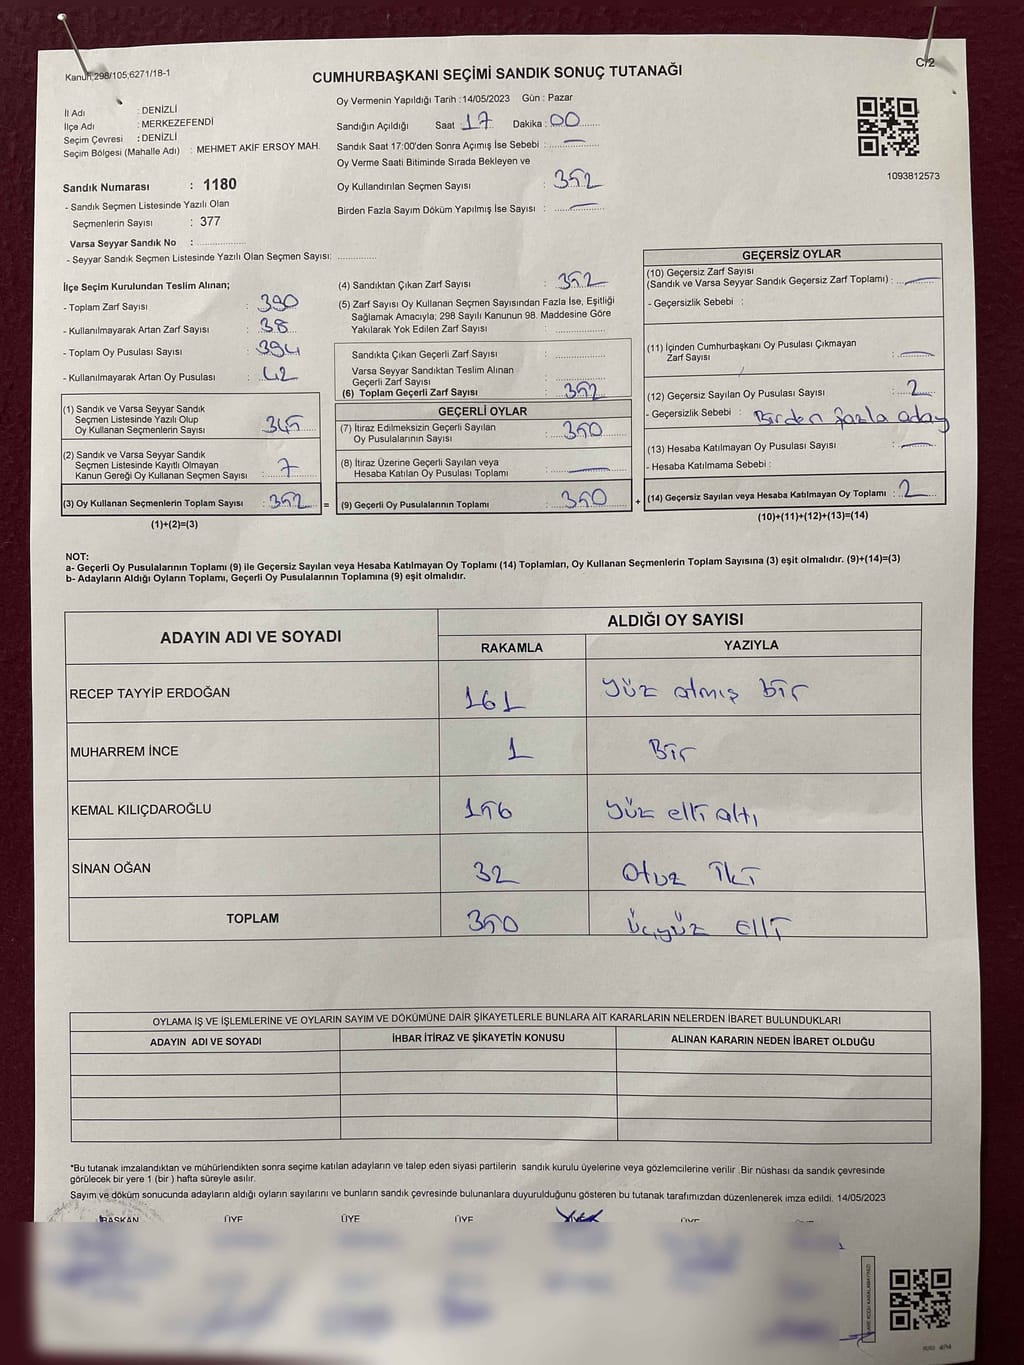 Kanun;298/105;6271/18-1
C/2
CUMHURBAŞKANI SEÇİMİ SANDIK SONUÇ TUTANAĞI
İl Adı : DENİZLİ
İlçe Adı : MERKEZEFENDİ
Seçim Çevresi : DENİZLİ
Seçim Bölgesi (Mahalle Adı) : MEHMET AKİF ERSOY MAH.
Sandık Numarası : 1180
- Sandık Seçmen Listesinde Yazılı Olan
Seçmenlerin Sayısı : 377
Varsa Seyyar Sandık No :
- Seyyar Sandık Seçmen Listesinde Yazılı Olan Seçmen Sayısı:
Oy Vermenin Yapıldığı Tarih :14/05/2023 Gün : Pazar
Sandığın Açıldığı Saat 17 Dakika : 00
Sandık Saat 17:00'den Sonra Açımış İse Sebebi : —
Oy Verme Saati Bitiminde Sırada Bekleyen ve
Oy Kullandırılan Seçmen Sayısı : 352
Birden Fazla Sayım Döküm Yapılmış İse Sayısı : —
1093812573
İlçe Seçim Kurulundan Teslim Alınan;
- Toplam Zarf Sayısı : 390
- Kullanılmayarak Artan Zarf Sayısı : 38
- Toplam Oy Pusulası Sayısı : 394
- Kullanılmayarak Artan Oy Pusulası : 42
(1) Sandık ve Varsa Seyyar Sandık
Seçmen Listesinde Yazılı Olup
Oy Kullanan Seçmenlerin Sayısı : 345
(2) Sandık ve Varsa Seyyar Sandık
Seçmen Listesinde Kayıtlı Olmayan
Kanun Gereği Oy Kullanan Seçmen Sayısı : 7
(3) Oy Kullanan Seçmenlerin Toplam Sayısı : 352 =
(1)+(2)=(3)
(4) Sandıktan Çıkan Zarf Sayısı : 352
(5) Zarf Sayısı Oy Kullanan Seçmen Sayısından Fazla İse, Eşitliği
Sağlamak Amacıyla; 298 Sayılı Kanunun 98. Maddesine Göre
Yakılarak Yok Edilen Zarf Sayısı :
Sandıkta Çıkan Geçerli Zarf Sayısı :
Varsa Seyyar Sandıktan Teslim Alınan
Geçerli Zarf Sayısı :
(6) Toplam Geçerli Zarf Sayısı : 352
GEÇERLİ OYLAR
(7) İtiraz Edilmeksizin Geçerli Sayılan
Oy Pusulalarının Sayısı : 350
(8) İtiraz Üzerine Geçerli Sayılan veya
Hesaba Katılan Oy Pusulası Toplamı : —
(9) Geçerli Oy Pusulalarının Toplamı : 350 +
GEÇERSİZ OYLAR
(10) Geçersiz Zarf Sayısı
(Sandık ve Varsa Seyyar Sandık Geçersiz Zarf Toplamı) : —
- Geçersizlik Sebebi :
(11) İçinden Cumhurbaşkanı Oy Pusulası Çıkmayan
Zarf Sayısı : —
(12) Geçersiz Sayılan Oy Pusulası Sayısı : 2
- Geçersizlik Sebebi : Birden fazla aday
(13) Hesaba Katılmayan Oy Pusulası Sayısı : —
- Hesaba Katılmama Sebebi :
(14) Geçersiz Sayılan veya Hesaba Katılmayan Oy Toplamı : 2
(10)+(11)+(12)+(13)=(14)
NOT:
a- Geçerli Oy Pusulalarının Toplamı (9) ile Geçersiz Sayılan veya Hesaba Katılmayan Oy Toplamı (14) Toplamları, Oy Kullanan Seçmenlerin Toplam Sayısına (3) eşit olmalıdır. (9)+(14)=(3)
b- Adayların Aldığı Oyların Toplamı, Geçerli Oy Pusulalarının Toplamına (9) eşit olmalıdır.
ADAYIN ADI VE SOYADI
ALDIĞI OY SAYISI
RAKAMLA YAZIYLA
RECEP TAYYİP ERDOĞAN 161 Yüz atmış bir
MUHARREM İNCE 1 Bir
KEMAL KILIÇDAROĞLU 156 Yüz elli altı
SİNAN OĞAN 32 Otuz iki
TOPLAM 350 Üçyüz elli
OYLAMA İŞ VE İŞLEMLERİNE VE OYLARIN SAYIM VE DÖKÜMÜNE DAİR ŞİKAYETLERLE BUNLARA AİT KARARLARIN NELERDEN İBARET BULUNDUKLARI
ADAYIN ADI VE SOYADI İHBAR İTİRAZ VE ŞİKAYETİN KONUSU ALINAN KARARIN NEDEN İBARET OLDUĞU
*Bu tutanak imzalandıktan ve mühürlendikten sonra seçime katılan adayların ve talep eden siyasi partilerin sandık kurulu üyelerine veya gözlemcilerine verilir .Bir nüshası da sandık çevresinde
görülecek bir yere 1 (bir ) hafta süreyle asılır.
Sayım ve döküm sonucunda adayların aldığı oyların sayılarını ve bunların sandık çevresinde bulunanlara duyurulduğunu gösteren bu tutanak tarafımızdan düzenlenerek imza edildi. 14/05/2023
BAŞKAN ÜYE ÜYE ÜYE